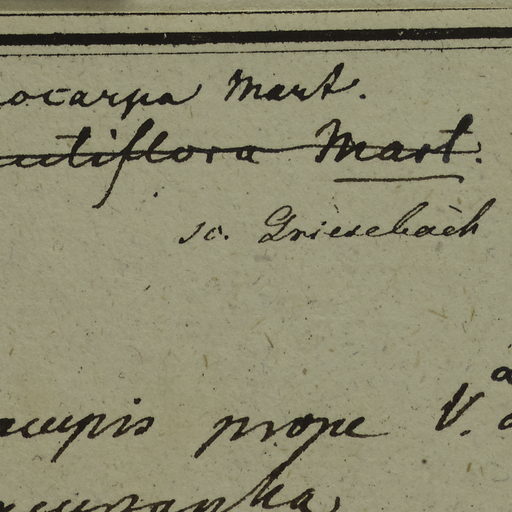 ocarpa Mart.
utiflora Mart.
sc. Griesebach
prope V.